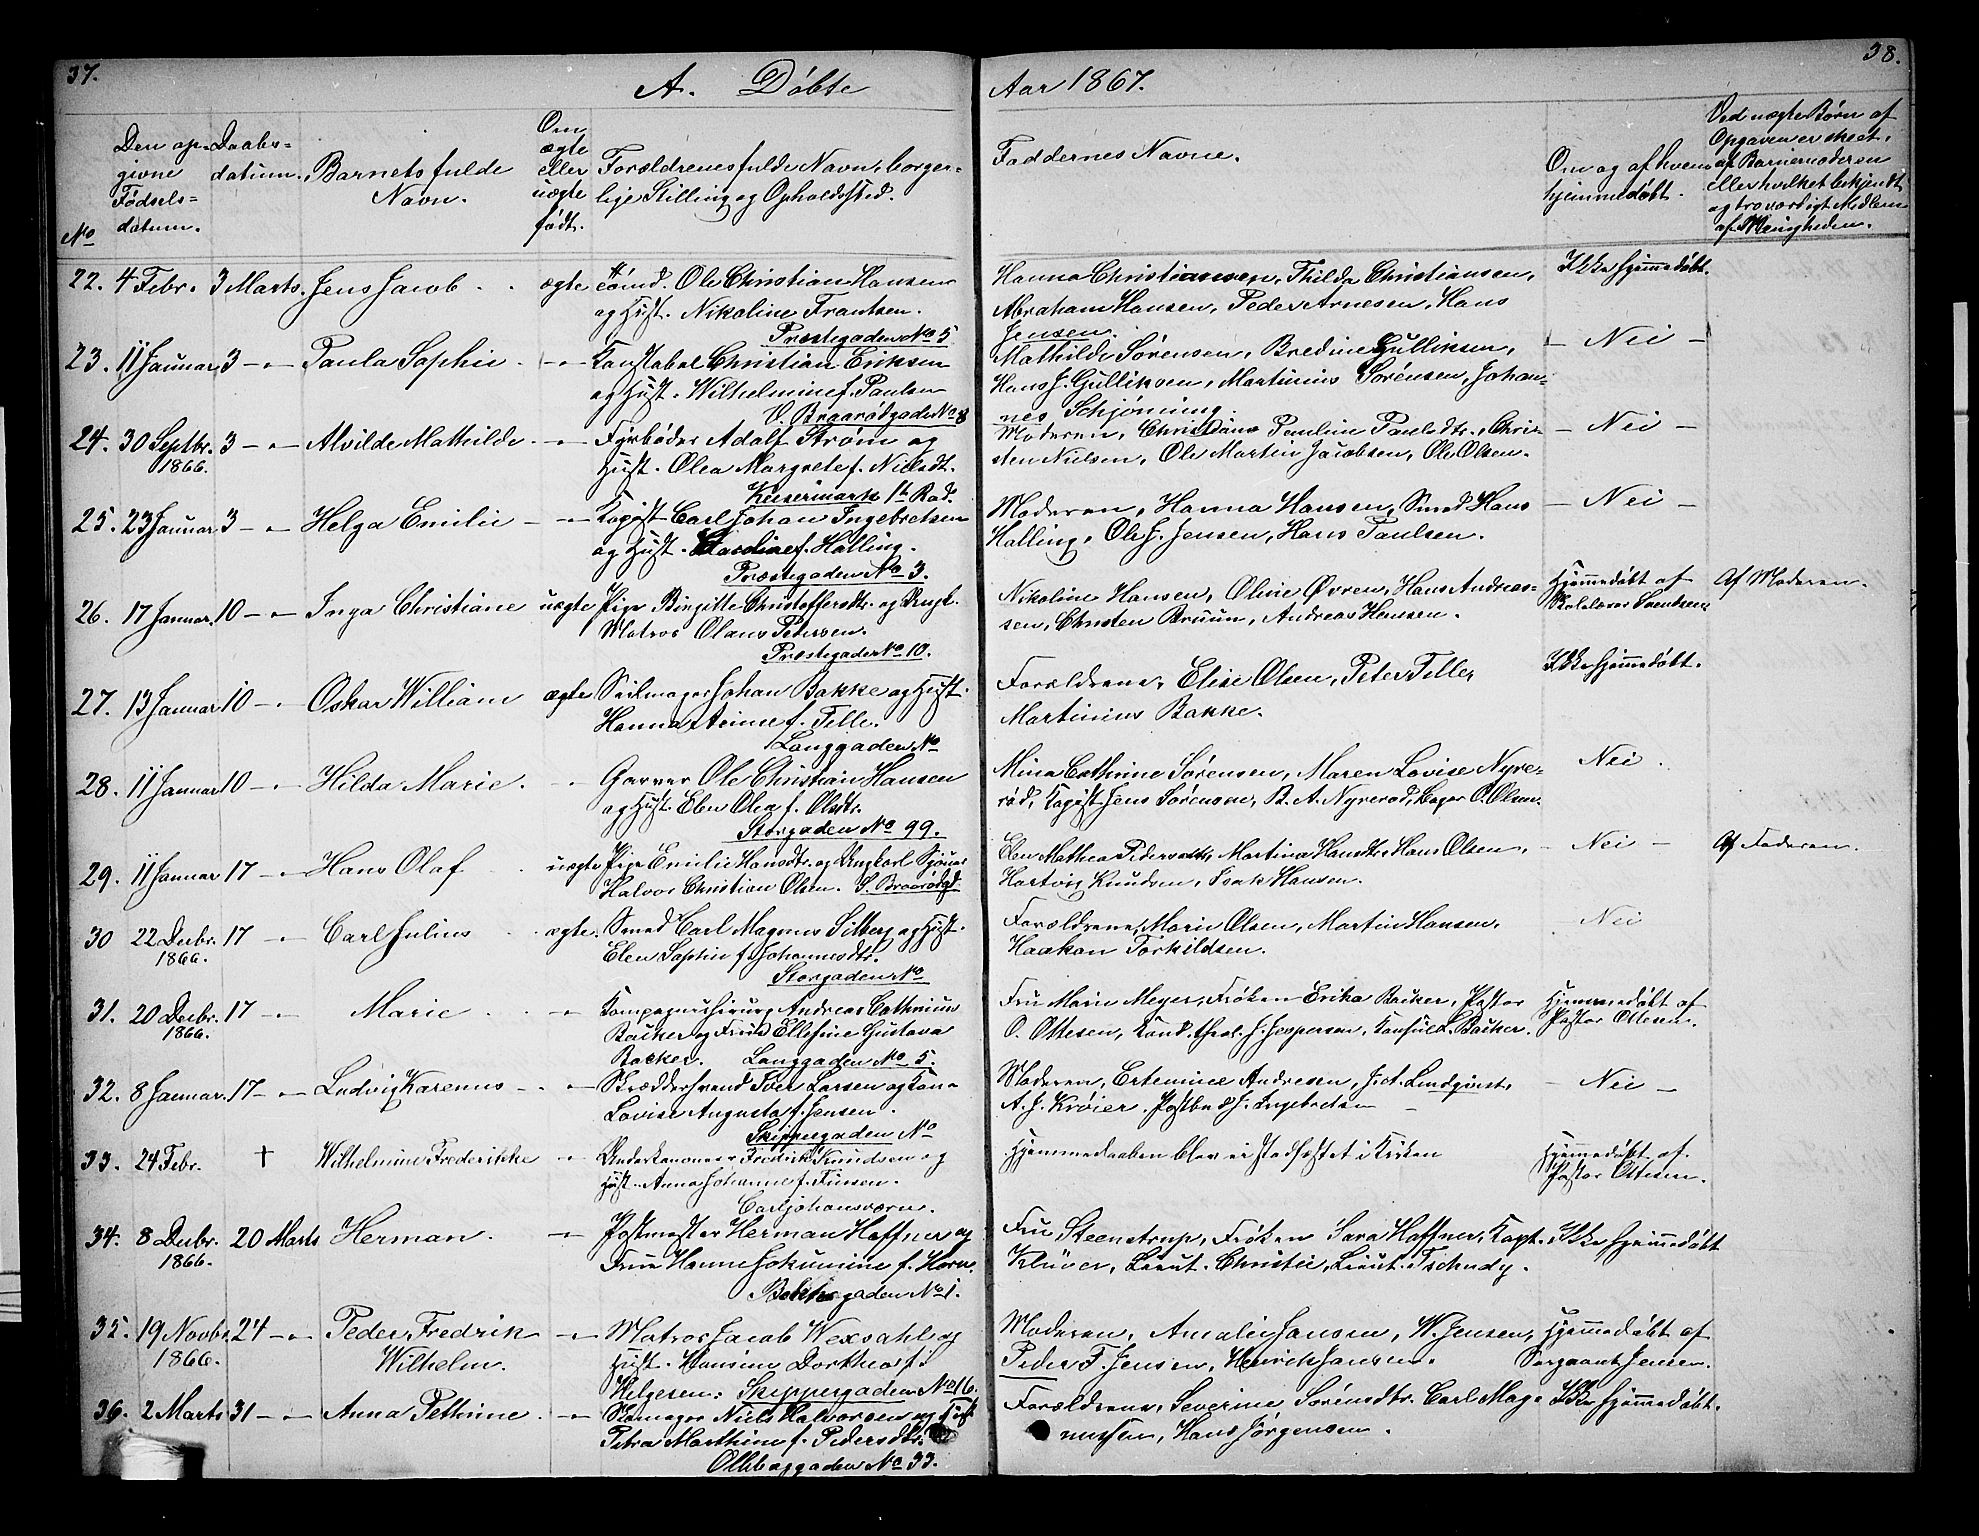 37.
A. Døbte
Aar 1867.
38.
No
Den op-
givne
Fødsels-
datum.
Daabs-
datum.
Barnets fulde
Navn.
Om
ægte
eller
uægte
født.
Forældrenes fulde Navn, borger-
lige Stilling og Opholdssted.
Faddernes Navne.
Om og af hvem
hjemmedøbt.
Ved uægte Børn af
Opgaven er skeet,
af Barnemoderen
eller hvilket bekjendt
og troværdigt Medlem
af Menigheden.
22. 4 Febr. 3 Marts. Jens Jacob ægte Ole Christian Hansen
og Hust. Nikoline Frantsen.
Præstegaden No 5
Hanna Christiansen, Thilda Christiansen,
Abraham Hansen, Peder Arnesen, Hans
Jensen.
Ikke hjemmedøbt.
23. 11 Januar 3 -"- Paula Sophie -"- Konstabel Christian Eriksen
og Hust. Wilhelmine f. Paulsen
V. Braarødgade No 8
Mathilde Sørensen, Bredine Gulliksen,
Hans J. Gulliksen, Martinius Sørensen, Johan-
nes Schjønning.
- Nei -
24. 30 Septbr. 3 -"- Alvilde Mathilde -"- Fyrbøder Adolf Strøm og
1866.
Hust. Olea Margrete f. Nielsdt.
Keisermark 1te Rad.
Moderen, Christiane Pauline Paulsdtr., Chri-
sten Nielsen, Ole Martin Jacobsen, Ole Olsen.
- Nei -
25. 23 Januar 3 -"- Helga Emilie -"- Carl Johan Ingebretsen
og Hust. f. Halling.
Præstegaden No 3.
Moderen, Hanna Hansen, Smed Hans
Halling, Ole J. Jensen, Hans Paulsen.
- Nei -
26. 17 Januar 10 -"- Inga Christiane uægte Pige Birgitte Christoffersdtr. og Ungk.
Matros Olaus Petersen.
Præstegade No 10.
Nikoline Hansen, Oline Øvren, Hans Andreas-
sen, Christen Bruun, Andreas Henssen.
Hjemmedøbt af
Skolelærer Svendsen
Af Moderen.
27. 13 Januar 10 -"- Oskar William ægte Seilmager Johan Bakke og Hust.
Hanna f. Telle.
Langgaden No
Forældrene, Elise Olsen, Peter Telle,
Martinius Bakke.
Ikke hjemmedøbt.
28. 11 Januar 10 -"- Hilda Marie. -"- Garver Ole Christian Hansen
og Hust. Elen Olea f. Olsdtr.
Storgaden No 99.
Mina Cathrine Sørensen, Maren Lovise Nyre-
rød, Jens Sørensen, B. A. Nyrerød, Bager O. Olsen.
Nei.
29. 11 Januar 17 -"- Hans Olaf uægte Pige Emilie Hansdtr. og Ungkarl Sjømand
Halvor Christian Olsen. S. Braarødgd.
Elen Mathea Pedersdtr., Martina Hansdtr., Hans Olsen,
Hartvig Knudsen, Isak Hansen.
- Nei -
Af Faderen.
30 22 Decbr. 17 -"- Carl Julius ægte. Smed Carl Magnus Silberg og Hust.
1866.
Elen Sophie f. Johannesdtr.
Storgaden No
Forældrene, Marie Olsen, Martin Hansen,
Haakon Torkildsen.
Nei
31. 20 Decbr. 17 -"- Marie -"- Kompagnichirurg Andreas Cathrinus
1866.
Backer og Frue Ellefine Gustava
Backer. Langgaden No 5.
Fru Marie Meyer, Frøken Erika Backer, Pastor
O. Ottesen, Kand. theol. J. Jespersen, Konsul Backer.
Hjemmedøbt af
Pastor Ottesen.
32. 8 Januar. 17 -"- Ludvig Karenus -"- Skræddersvend Iver Larsen og Kone
Lovise Augusta f. Jensen.
Skippergaden No
Moderen, Ertemine Andresen, Lindqvist,
A. J. Krøier. Postbud J. Ingebretsen
- Nei -
33. 24 Febr. † Wilhelmine Frederikke -"- Underkanoner Fredrik Knudsen og
Hust. Anna Johanne f. Funsen.
Carljohansværn.
Hjemmedaaben blev ei stadfæstet i Kirken
Hjemmedøbt af
Pastor Ottesen.
34. 8 Decbr. 20 Marts Herman. -"- Postmester Herman Haffner og
1866.
Frue Hanne Jokumine f. Horn.
gaden No 1.
Fru Steenstrup, Frøken Sara Haffner, Kapt.
Klüver, Lieut. Christie, Lieut. Tschudy.
Ikke hjemmedøbt
35. 19 Novbr. 24 -"- Peder Fredrik -"- Matros Jacob Wexsahl og
1866.
Wilhelm.
Hust. Hansine Dorthea f.
Helgesen. Skippergaden No 16.
Moderen, Amalie Jansen, W. Jensen,
Peder F. Jensen, Henrich Jansen.
Hjemmedøbt af
Sergeant Jensen.
36. 2 Marts 31 -"- Anna Pethrine -"- Skomager Niels Halvorsen og Hust
Petra Marthine f. Pedersdtr.
Ollebaggaden No 33.
Forældrene, Severine Sørensdtr. Carl Mag-
nussen, Hans Jørgensen.
Ikke hjemmedøbt.